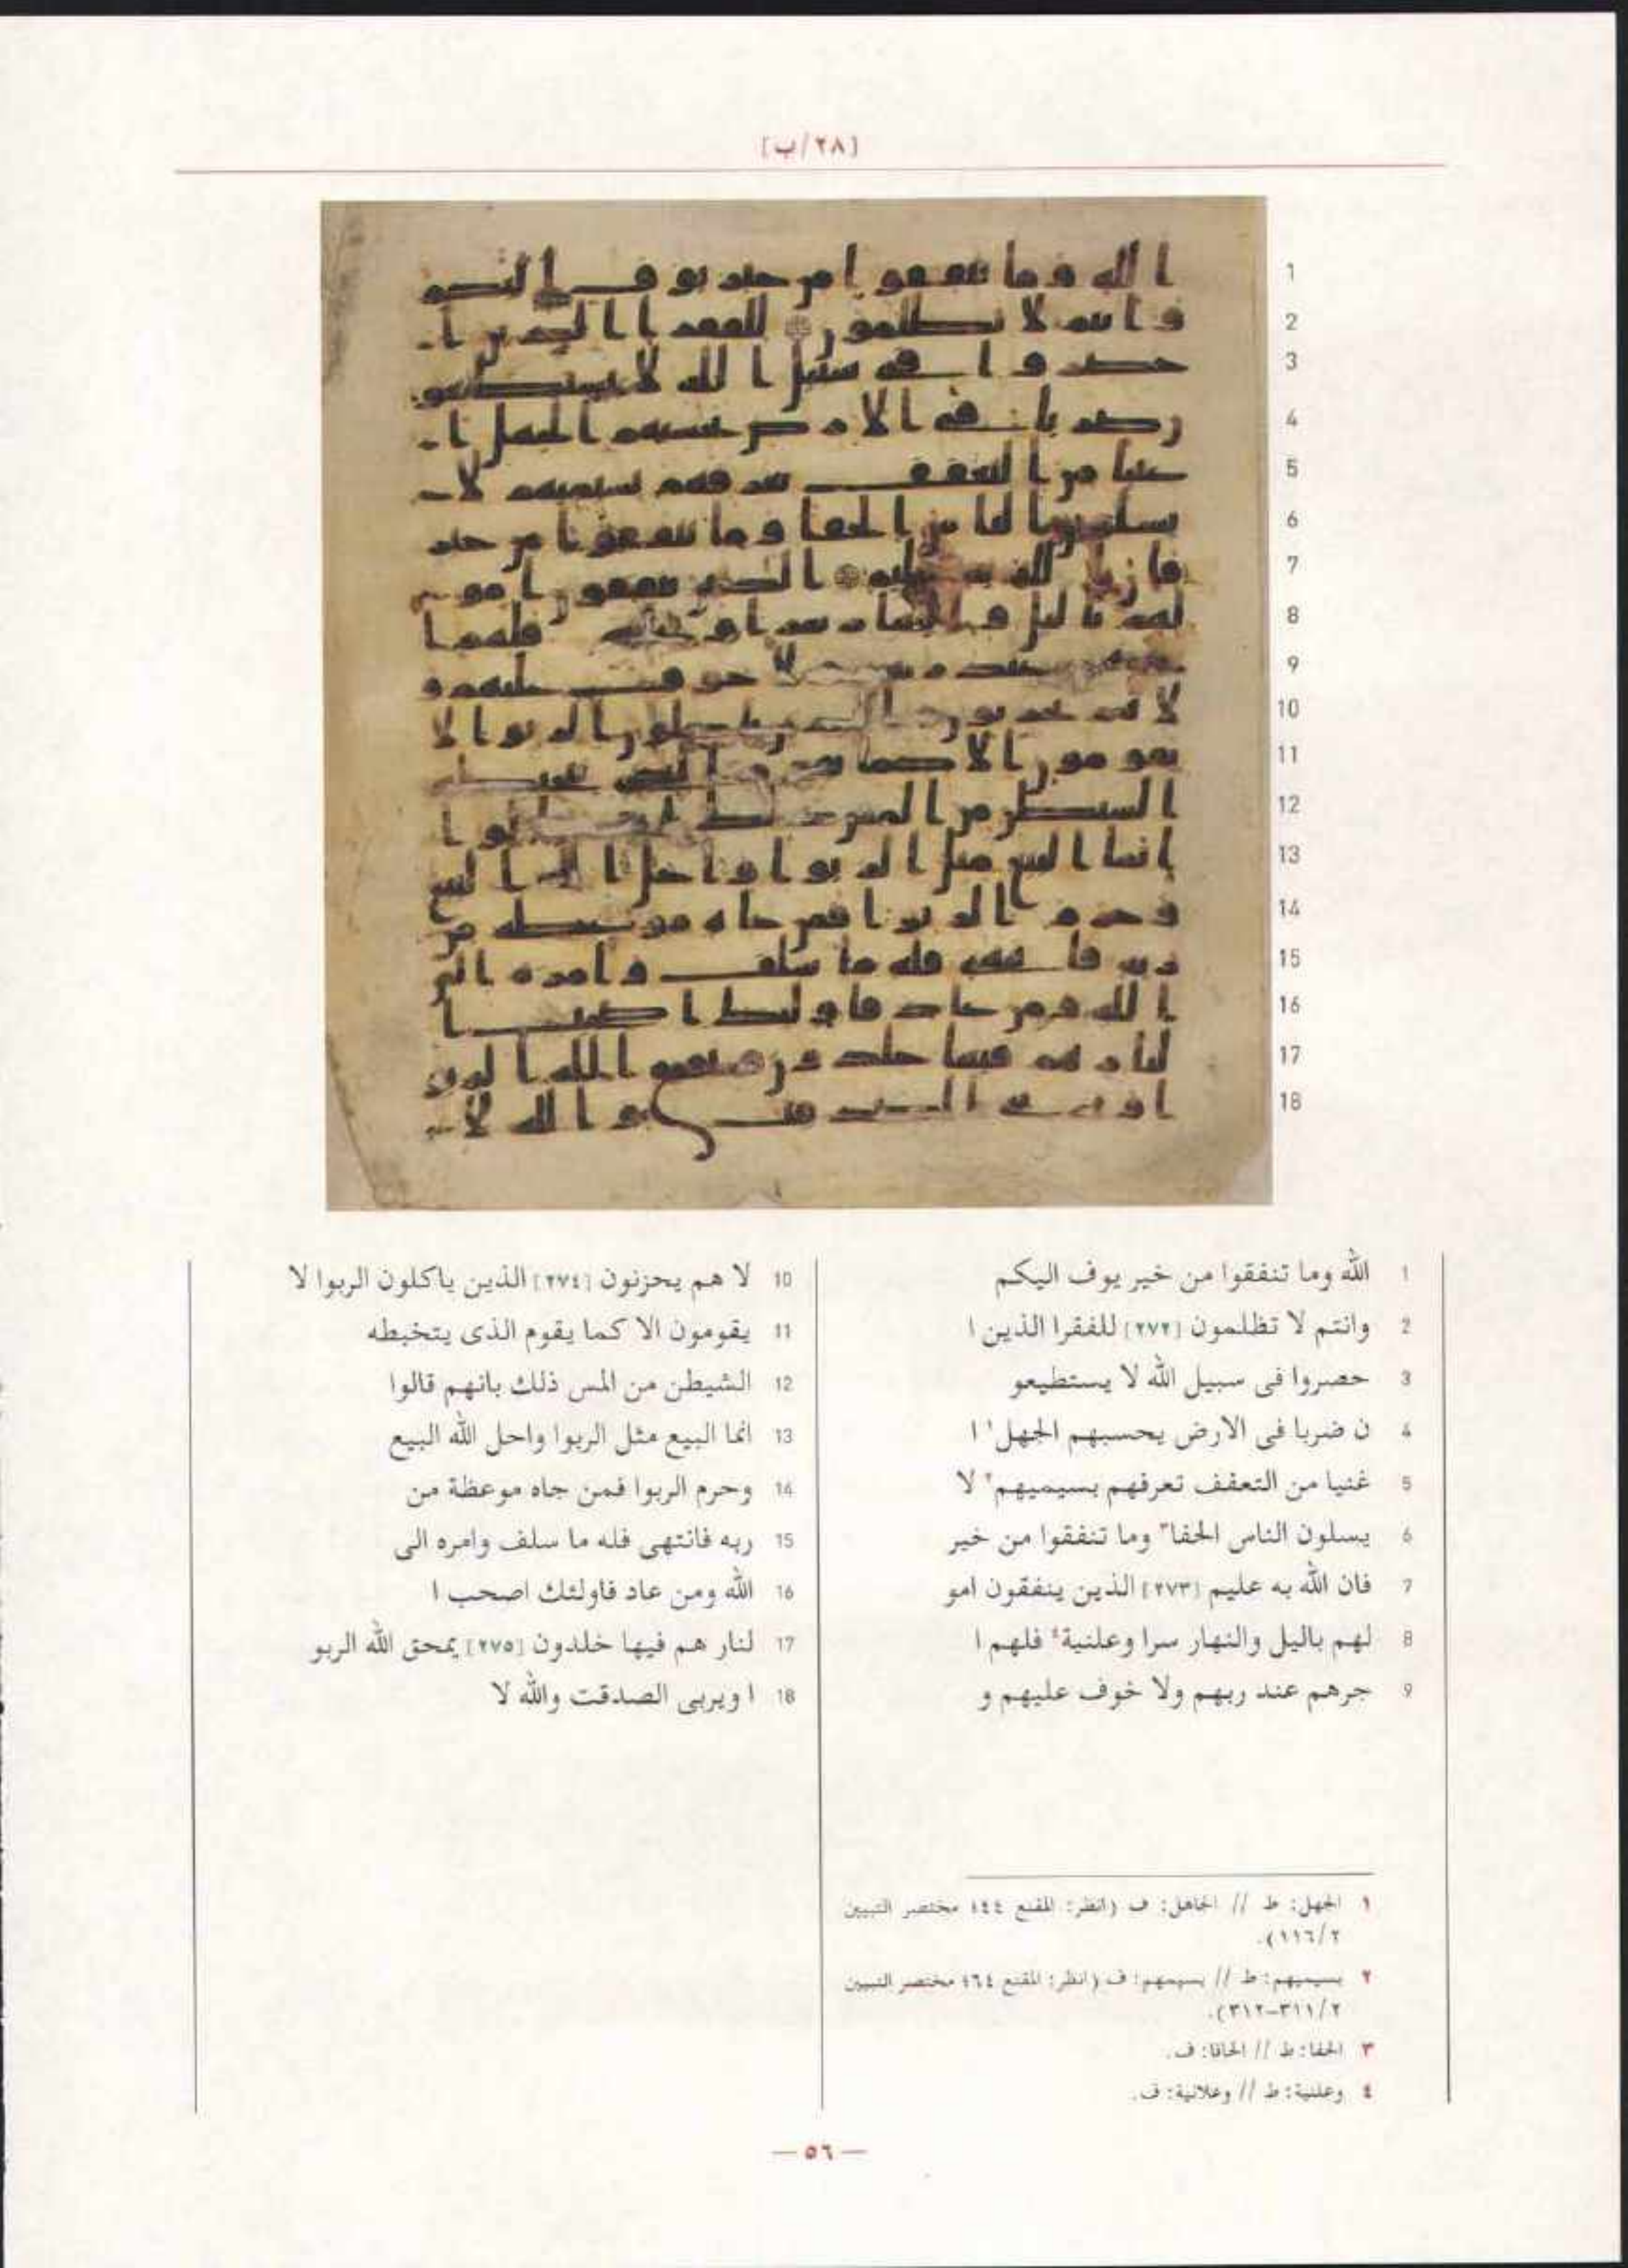 [٢٨/ب]
1 الله وما تنفقوا من خير يوف اليكم
2 وانتم لا تظلمون [٢٧٢] للفقرا الذين ا
3 حصروا فى سبيل الله لا يستطيعو
4 ن ضربا فى الارض يحسبهم الجهل١ ا
5 غنيا من التعفف تعرفهم بسيميهم٢ لا
6 يسلون الناس الحفا٣ وما تنفقوا من خير
7 فان الله به عليم [٢٧٣] الذين ينفقون امو
8 لهم باليل والنهار سرا وعلنية٤ فلهم ا
9 جرهم عند ربهم ولا خوف عليهم و
10 لا هم يحزنون [٢٧٤] الذين ياكلون الربوا لا
11 يقومون الا كما يقوم الذى يتخبطه
12 الشيطن من المس ذلك بانهم قالوا
13 انما البيع مثل الربوا واحل الله البيع
14 وحرم الربوا فمن جاه موعظة من
15 ربه فانتهى فله ما سلف وامره الى
16 الله ومن عاد فاولئك اصحب ا
17 لنار هم فيها خلدون [٢٧٥] يمحق الله الربو
18 ا ويربى الصدقت والله لا
١ الجهل: ط // الجاهل: ف (انظر: المقنع ٤٤؛ مختصر التبيين
٢/١١٦).
٢ بسيميهم: ط // بسيمهم: ف (انظر: المقنع ٦٤؛ مختصر التبيين
٢/٣١١–٣١٢).
٣ الحفا: ط // الحافا: ف.
٤ وعلنية: ط // وعلانية: ف.
— ٥٦ —